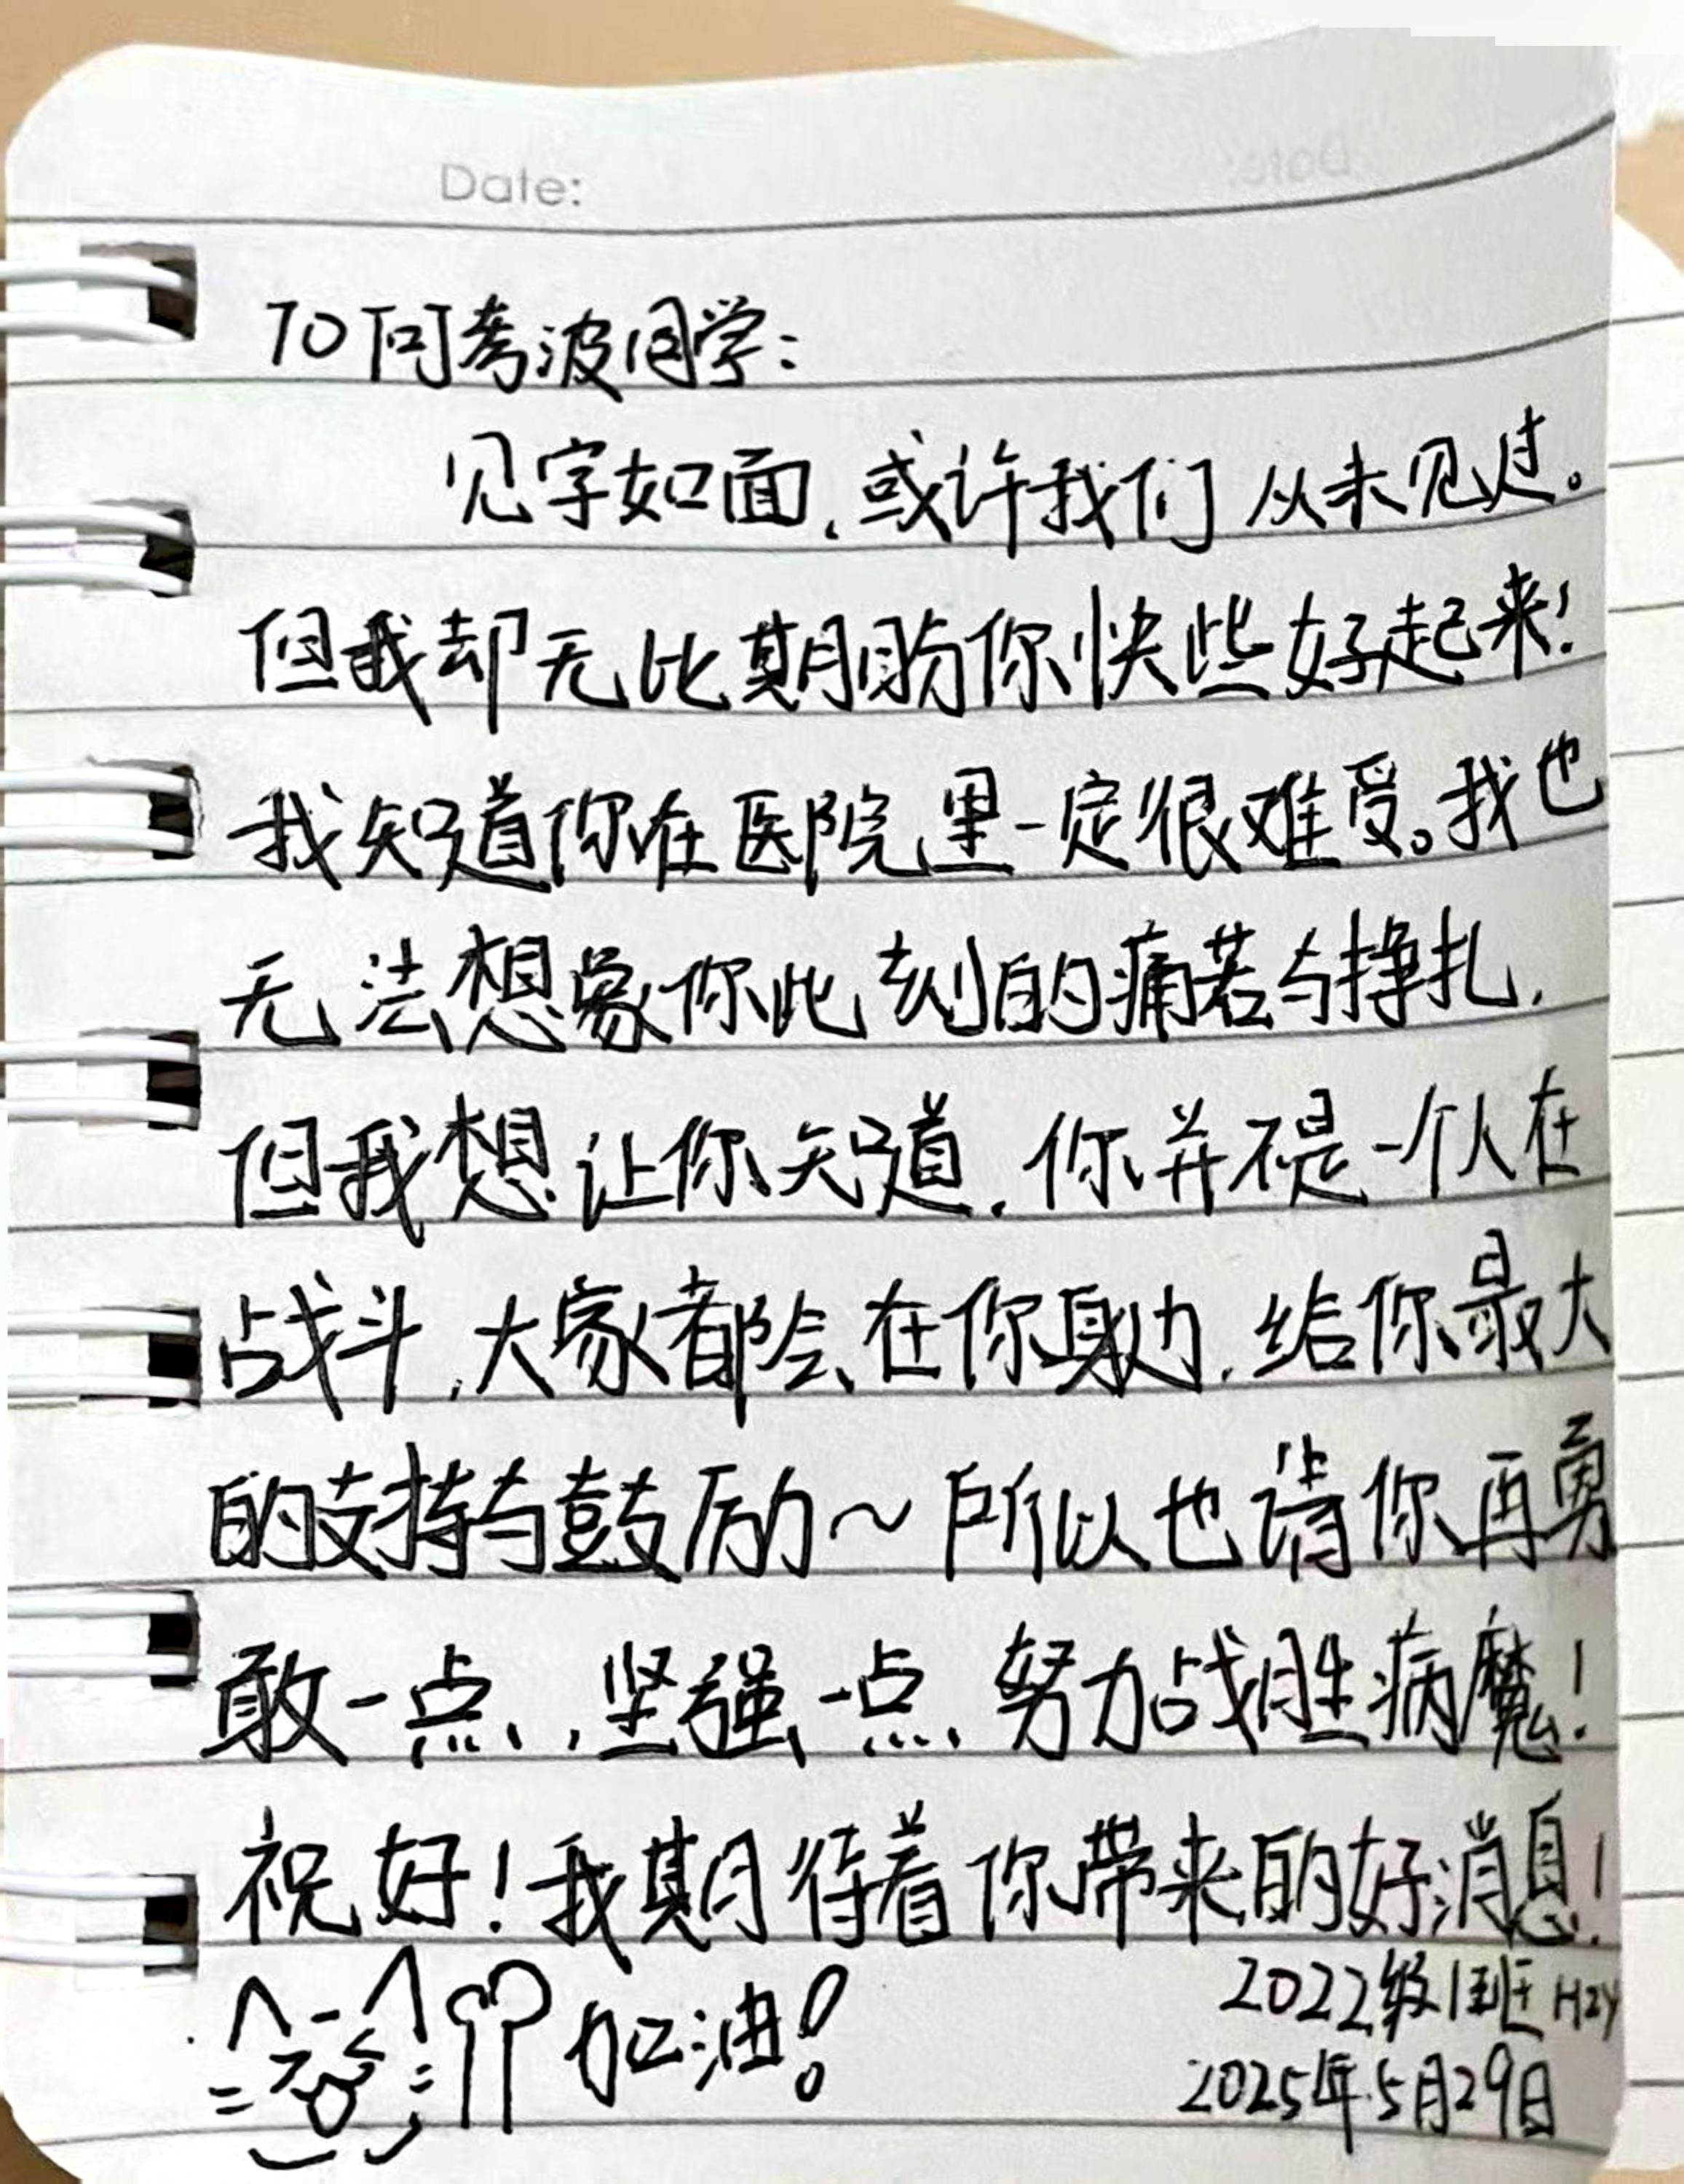 Date:
TO何考波同学：
见字如面，或许我们从未见过。
但我却无比期盼你快些好起来！
我知道你在医院里一定很难受。我也
无法想象你此刻的痛苦与挣扎，
但我想让你知道，你并不是一个人在
战斗，大家都会在你身边，给你最大
的支持与鼓励～所以也请你再勇
敢一点，坚强一点，努力战胜病魔！
祝好！我期待着你带来的好消息！
加油！
2022级1班 HZY
2025年5月29日